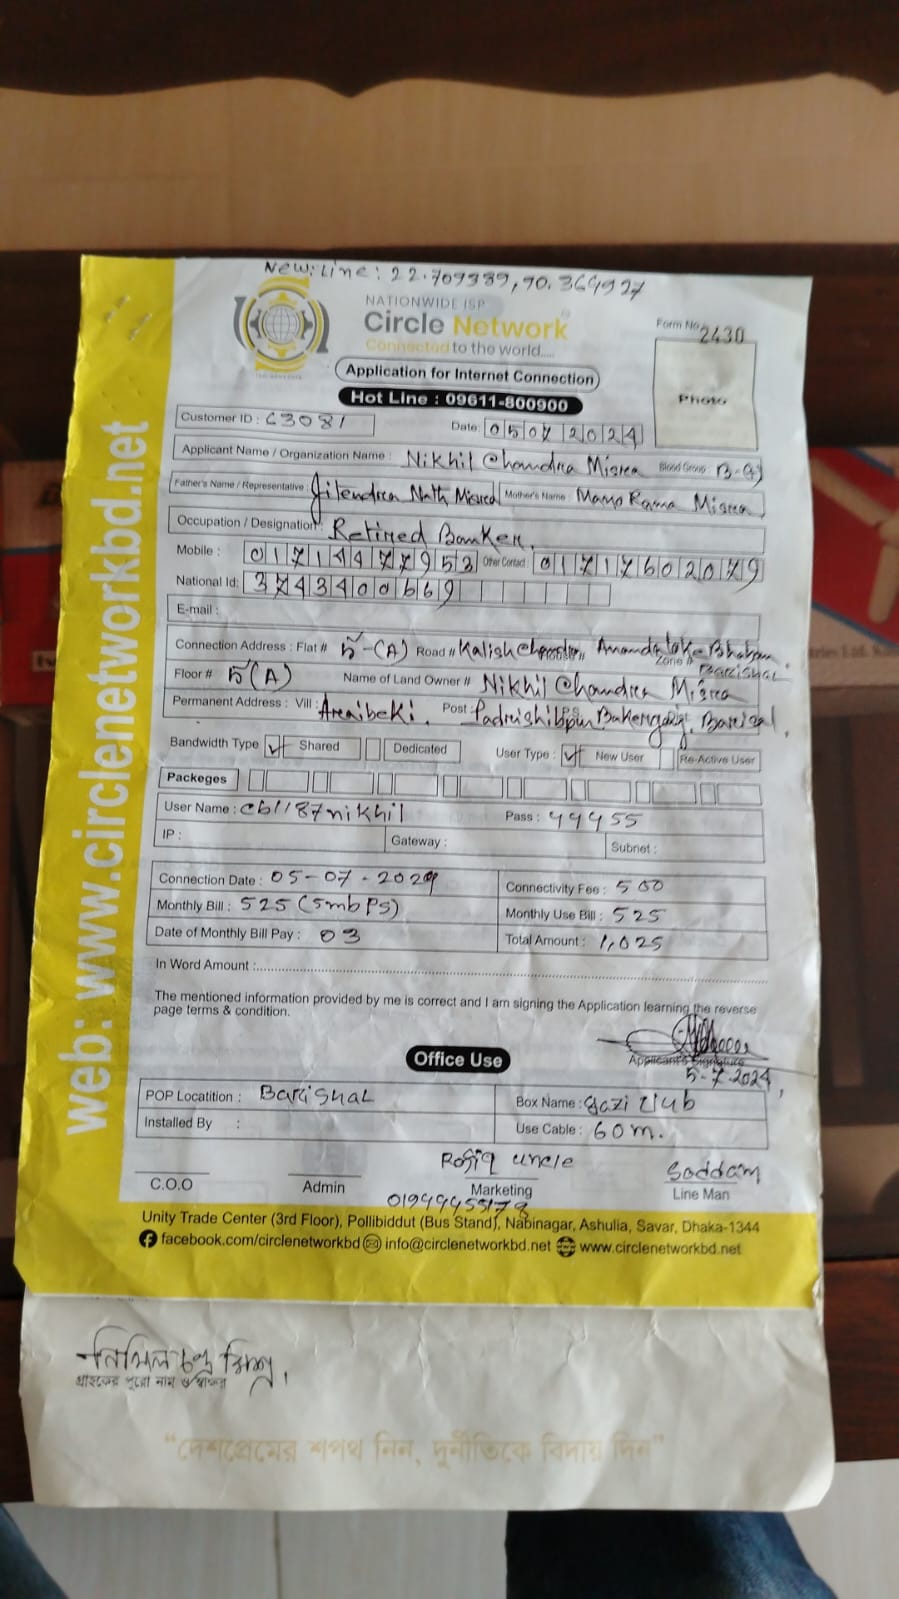 New: Line: 22.709389, 90.364927
NATIONWIDE ISP
Circle Network
Connected to the world.....
Form No. 2430
Application for Internet Connection
Hot Line : 09611-800900
Photo
Customer ID : C3081
Date: 05072024
Applicant Name / Organization Name : Nikhil Chandra Misra Blood Group B
Father's Name / Representative : Jitendra Nath Misra Mother's Name : Mano Rama Misra
Occupation / Designation : Retired Banker.
Mobile : 01714477953 Other Contact 01717602079
National Id: 3743400669
E-mail :
Connection Address : Flat # ৫-(A) Road # Kalish Chandra Ananda Bhaban, Zone # Barishal
Floor # ৫(A) Name of Land Owner # Nikhil Chandra Misra
Permanent Address : Vill : Araibeki. Post : Padrishibpur P.S Bakergonj, Barisal,
Bandwidth Type ✓ Shared Dedicated User Type : ✓ New User Re-Active User
Packeges
User Name : cb1187nikhil Pass : 44455
IP : Gateway : Subnet :
Connection Date : 05-07-2024 Connectivity Fee : 500
Monthly Bill : 525 (5mbps) Monthly Use Bill : 525
Date of Monthly Bill Pay : 03 Total Amount : 1,025
In Word Amount :
The mentioned information provided by me is correct and I am signing the Application learning the reverse
page terms & condition.
Applicant's Signature
5-7-2024,
Office Use
POP Locatition : Barishal Box Name : gazi club
Installed By : Use Cable : 60m.
Rofiq uncle Saddam
C.O.O Admin Marketing Line Man
Unity Trade Center (3rd Floor), Pollibiddut (Bus Stand), Nabinagar, Ashulia, Savar, Dhaka-1344
facebook.com/circlenetworkbd info@circlenetworkbd.net www.circlenetworkbd.net
web: www.circlenetworkbd.net
নিখিল চন্দ্র মিশ্র,
গ্রাহকের পুরো নাম ও স্বাক্ষর
"দেশপ্রেমের শপথ নিন, দুর্নীতিকে বিদায় দিন"